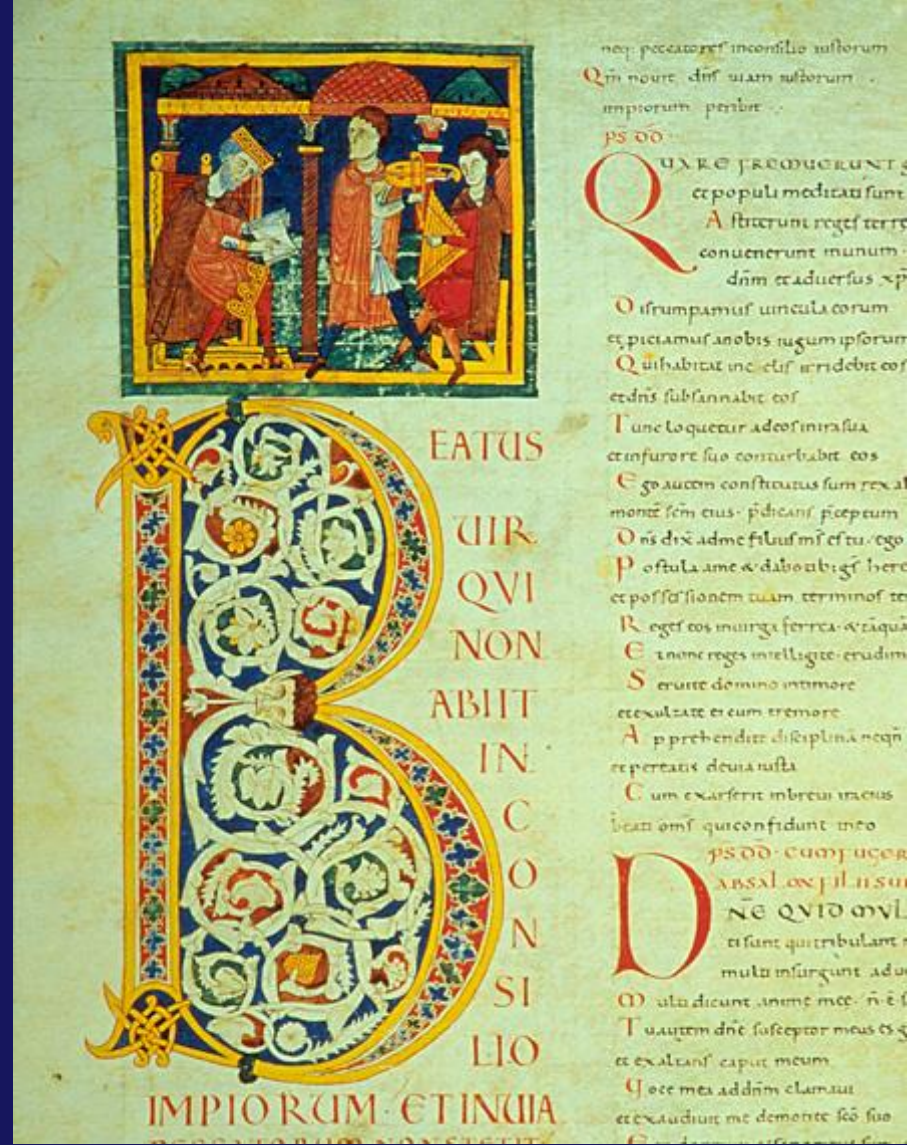 BEATUS
UIR
QVI
NON
ABIIT
IN
C
O
N
SI
LIO
IMPIORUM · ET INUIA
neq: peccatores inconsilio iustorum
Qm̄ nouit dn̄s uiam iustorum
impiorum peribit
PS DD
QUARE FREMUERUNT G
et populi meditati sunt
Astiterunt reges terre
conuenerunt inunum
dn̄m et aduersus xp̄
Disrumpamus uincula eorum
et piciamus anobis iugum ipsorum
Qui habitat in celis irridebit eos
et dn̄s subsannabit eos
Tunc loquetur adeos inira sua
et infurore suo conturbabit eos
Ego autem constitutus sum rex ab
monte scm̄ eius · p̄dicans p̄ceptum
Dn̄s dix̄ adme filius ms̄ es tu / ego
Postula ame & dabo tibi gs̄ here
et possessionem tuam terminos ter
Reges eos inuirga ferrea · & tāquā
Et nunc reges intelligite · erudim
Seruite domino intimore
et exultate ei cum tremore
Apprehendite disciplinā neqn̄
et pereatis deuia iusta
Cum exarserit inbreui ira eius
beati oms̄ qui confidunt ineo
PS DD · CUM FUGER
ABSALON FILII SUI
DN̄E QVID MVL
ti sunt qui tribulant
multi insurgunt adue
Multi dicunt anime mee · n̄ ē s
Tu autem dn̄e susceptor meus es g
et exaltans caput meum
Uoce mea addn̄m clamaui
et exaudiuit me demonte sc̄o suo